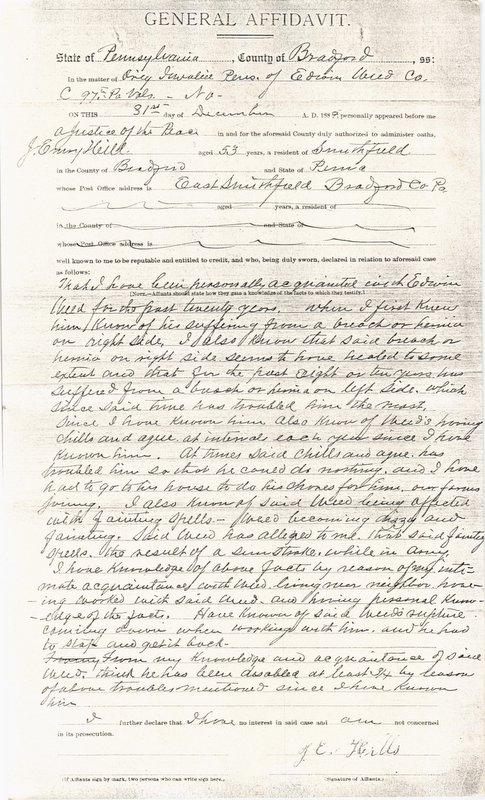 GENERAL AFFIDAVIT.
State of Pennsylvania, County of Bradford, ss:
In the matter of Orig Invalid Pens. of Edwin Weed Co.
C 97th Pa Vols. - No -
ON THIS 31st day of December A. D. 1889 personally appeared before me
a justice of the Peace in and for the aforesaid County duly authorized to administer oaths,
J. Emry Hills aged 53 years, a resident of Smithfield
in the County of Bradford and State of Penna
whose Post Office address is East Smithfield Bradford Co Pa
aged years, a resident of
in the County of and State of
whose Post Office address is
well known to me to be reputable and entitled to credit, and who, being duly sworn, declared in relation to aforesaid case
as follows:
That I have been personally acquainted with Edwin
[NOTE.—Affiants should state how they gain a knowledge of the facts to which they testify.]
Weed for the past twenty years. When I first knew
him, I know of his suffering from a breach or hernia
on right side, I also know that said breach or
hernia on right side seems to have healed to some
extent and that for the past eight or ten years has
suffered from a breach or hernia on left side. which
since said time has troubled him the most.
Since I have known him also know of Weed's having
chills and ague at interval each year since I have
known him. At times said chills and ague has
troubled him so that he could do nothing, and I have
had to go to his house to do his chores for him, our farms
joining. I also know of said Weed being affected
with fainting spells - Weed becoming dizzy and
fainting. Said Weed has alleged to me that said fainting
spells the result of a sunstroke while in army.
I have knowledge of above facts by reason of my inti-
mate acquaintance with Weed. living near neighbor hav-
ing worked with said Weed and having personal know-
ledge of the facts. Have known of said Weeds rupture
coming down when working with him. and he had
to stop and get it back -
From my knowledge and acquaintance of said
Weed. think he has been disabled at least 3/4 by reason
of above troubles mentioned since I have known
him
I further declare that I have no interest in said case and am not concerned
in its prosecution.
J. E. Hills
(If Affiants sign by mark, two persons who can write sign here.)
(Signature of Affiants.)